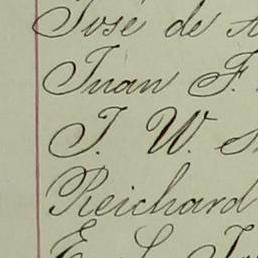 José de
Juan F.
J. W.
Reichard
E. L.